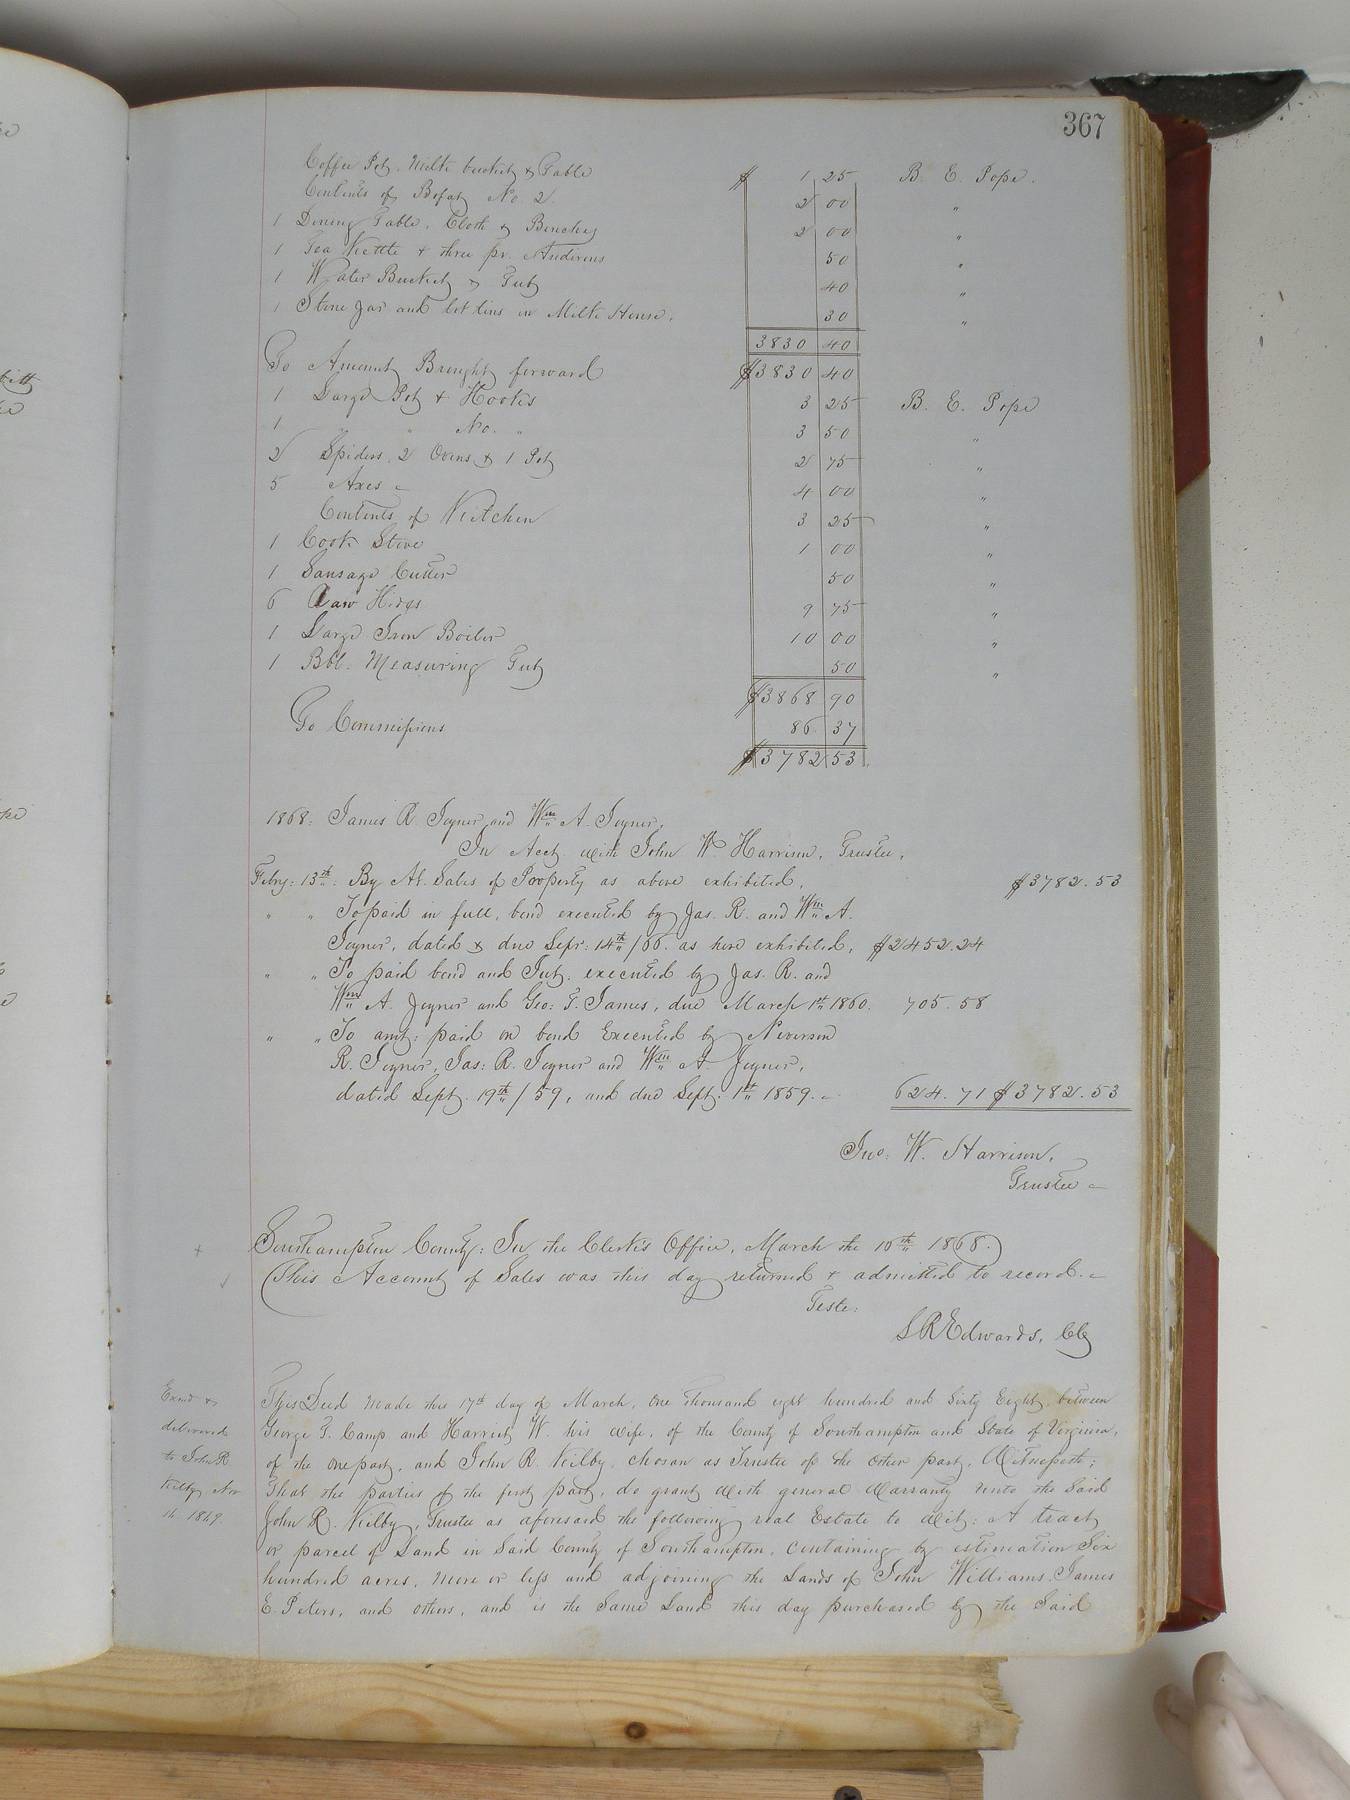 367
Coffee Pot, Milk bucket & Table $ 1 25 B. E. Pope.
Contents of Bofat No 2. 2 00 "
1 Dining Table, Cloth & Benches 2 00 "
1 Tea Kettle & three pr. Andirons 50 "
1 Water Bucket & Tub 40 "
1 Stone Jar and lot tins in Milk House. 30 "
3830 40
To Amount Brought forward $3830 40
1 Large Pot & Hooks 3 25 B. E. Pope
1 " No. " 3 50 "
2 Spiders, 2 Ovens & 1 Pot 2 75 "
5 Axes 4 00 "
Contents of Kitchen 3 25 "
1 Cook Stove 1 00 "
1 Sausage Cutter 50 "
6 Raw Hides 9 75 "
1 Large Iron Boiler 10 00 "
1 Bbl. Measuring Tub 50 "
$3868 90
To Commissions 86 37
$3782 53
1868: James R. Joyner and Wm A. Joyner,
In Acct with John W. Harrison, Trustee,
Feby: 13th: By At. Sales of Property as above exhibited, $3782.53
" " To paid in full, bond executed by Jas. R. and Wm A.
Joyner, dated & due Sepr: 14th /66. as here exhibited, $2452.24
" " To paid bond and Int. executed by Jas. R. and
Wm A. Joyner and Geo: T. James, due March 1st 1860. 705.58
" " To amt: paid on bond Executed by Niverson
R. Joyner, Jas: R. Joyner and Wm A. Joyner,
dated Sept. 19th /59, and due Sept: 1st 1859. 624.71 $3782.53
Jno: W. Harrison,
Trustee
Southampton County: In the Clerk's Office, March the 16th 1868.
This Account of Sales was this day returned & admitted to record.
Teste:
L R Edwards, Clk
Exmd &
delivered
to John R
Kilby Nov
16 1869.
This Deed made this 17th day of March, one thousand eight hundred and Sixty Eight, between
George T. Camp and Harriet W. his wife, of the County of Southampton and State of Virginia,
of the one part, and John R. Kilby, chosen as Trustee of the other part, Witnesseth:
That the parties of the first part, do grant with general warranty unto the Said
John R. Kilby, Trustee as aforesaid the following real Estate to wit: A tract
or parcel of Land in Said County of Southampton, containing by estimation Six
hundred acres, more or less and adjoining the Lands of John Williams, James
E. Peters, and others, and is the Same Land this day purchased by the Said